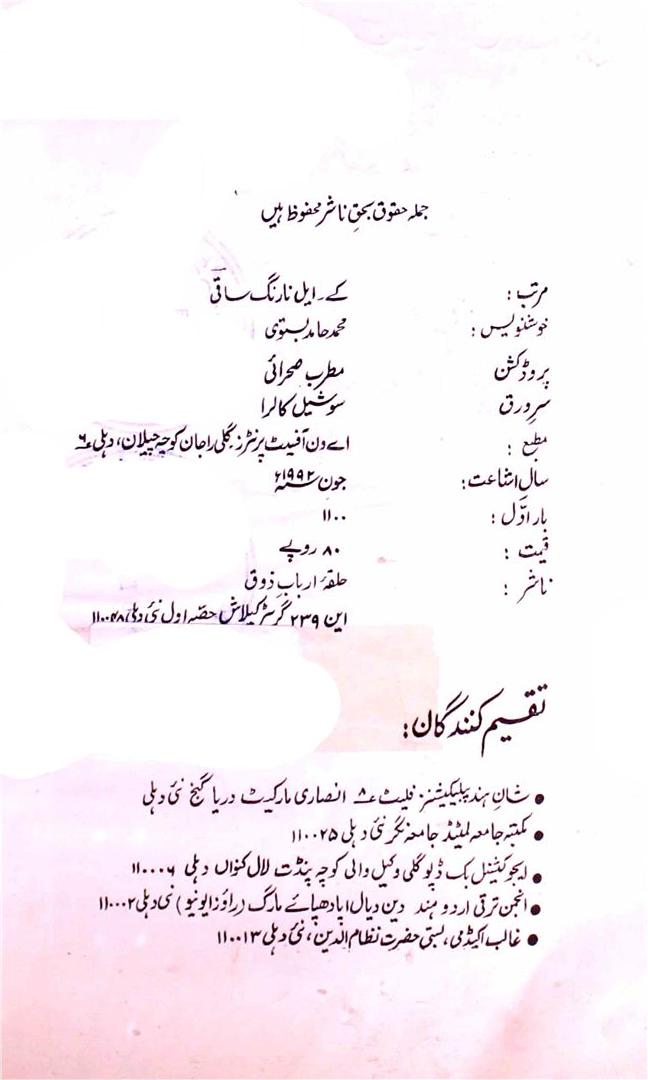 جملہ حقوق بحقِ ناشر محفوظ ہیں
مرتب : کے۔ ایل نارنگ ساقی
خوشنویس : محمد حامد بستوی
پروڈکشن مطرب صحرائی
سرورق سوشیل کالرا
مطبع : اے ون آفیٹ پرنٹرز گلی راجان کوچہ چیلان، دہلی ۶
سال اشاعت : جون ۱۹۹۲ء
بار اوّل : ۱۱۰۰
قیمت : ۸۰ روپے
ناشر : حلقۂ اربابِ ذوق
این ۲۳۹ گریٹر کیلاش حصّہ اول نئی دہلی ۱۱۰۰۴۸
تقسیم کنندگان :
● شانِ ہند پبلیکیشنز فلیٹ ۸ انصاری مارکیٹ دریا گنج نئی دہلی
● مکتبہ جامعہ لمیٹڈ جامعہ نگر نئی دہلی ۱۱۰۰۲۵
● ایجوکیشنل بک ڈپو گلی وکیل والی کوچہ پنڈت لال کنواں دہلی ۱۱۰۰۰۶
● انجمن ترقی اردو ہند دین دیال اپادھیائے مارگ (راؤز ایونیو) نئی دہلی ۱۱۰۰۰۲
● غالب اکیڈمی، بستی حضرت نظام الدین، نئی دہلی ۱۱۰۰۱۳